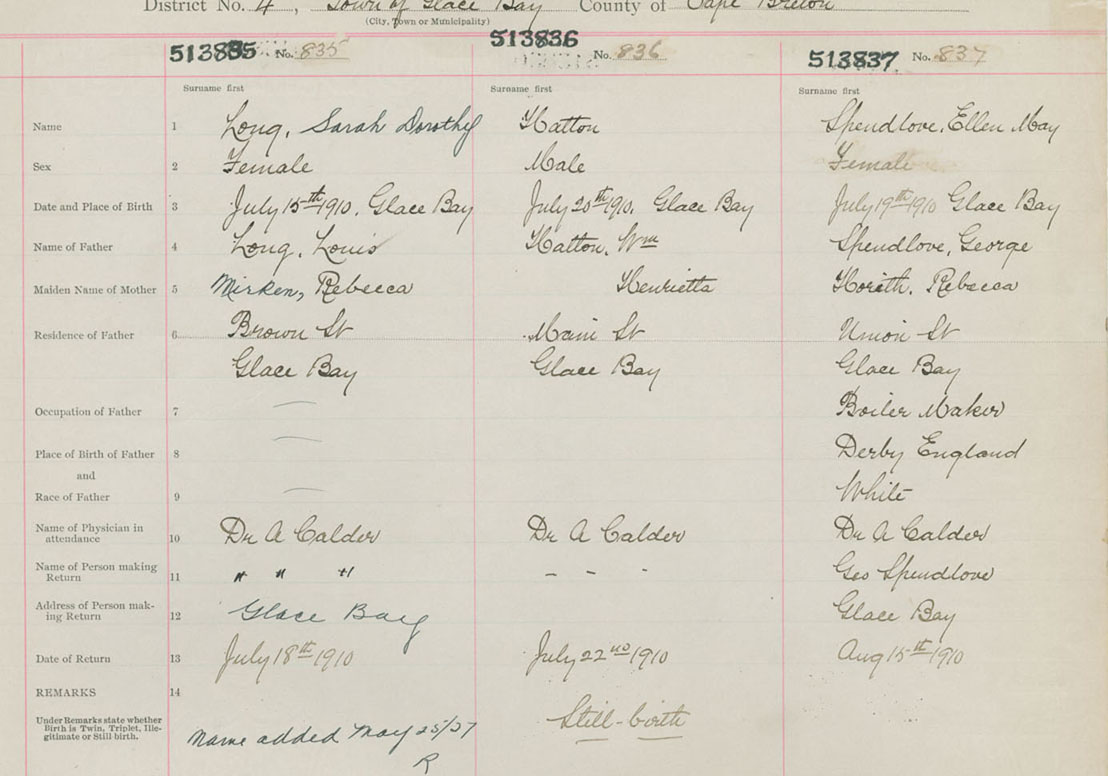 District No. 4, Town of Glace Bay County of Cape Breton
(City, Town or Municipality)
513835 No. 835 513836 No. 836 513837 No. 837
Surname first Surname first Surname first
Name 1 Long, Sarah Dorothy Hatton Spendlove, Ellen May
Sex 2 Female Male Female
Date and Place of Birth 3 July 15th 1910. Glace Bay July 20th 1910. Glace Bay July 19th 1910 Glace Bay
Name of Father 4 Long, Louis Hatton, Wm Spendlove, George
Maiden Name of Mother 5 Mirken, Rebecca Henrietta Rebecca
Residence of Father 6 Brown St Main St Union St
Glace Bay Glace Bay Glace Bay
Occupation of Father 7 — Boiler Maker
Place of Birth of Father 8 — Derby England
and
Race of Father 9 — White
Name of Physician in
attendance 10 Dr A Calder Dr A Calder Dr A Calder
Name of Person making
Return 11 " " " - - - Geo Spendlove
Address of Person mak-
ing Return 12 Glace Bay Glace Bay
Date of Return 13 July 18th 1910 July 22nd 1910 Aug 15th 1910
REMARKS 14
Under Remarks state whether
Birth is Twin, Triplet, Ille-
gitimate or Still birth.
Still-birth
Name added May 25/37
R